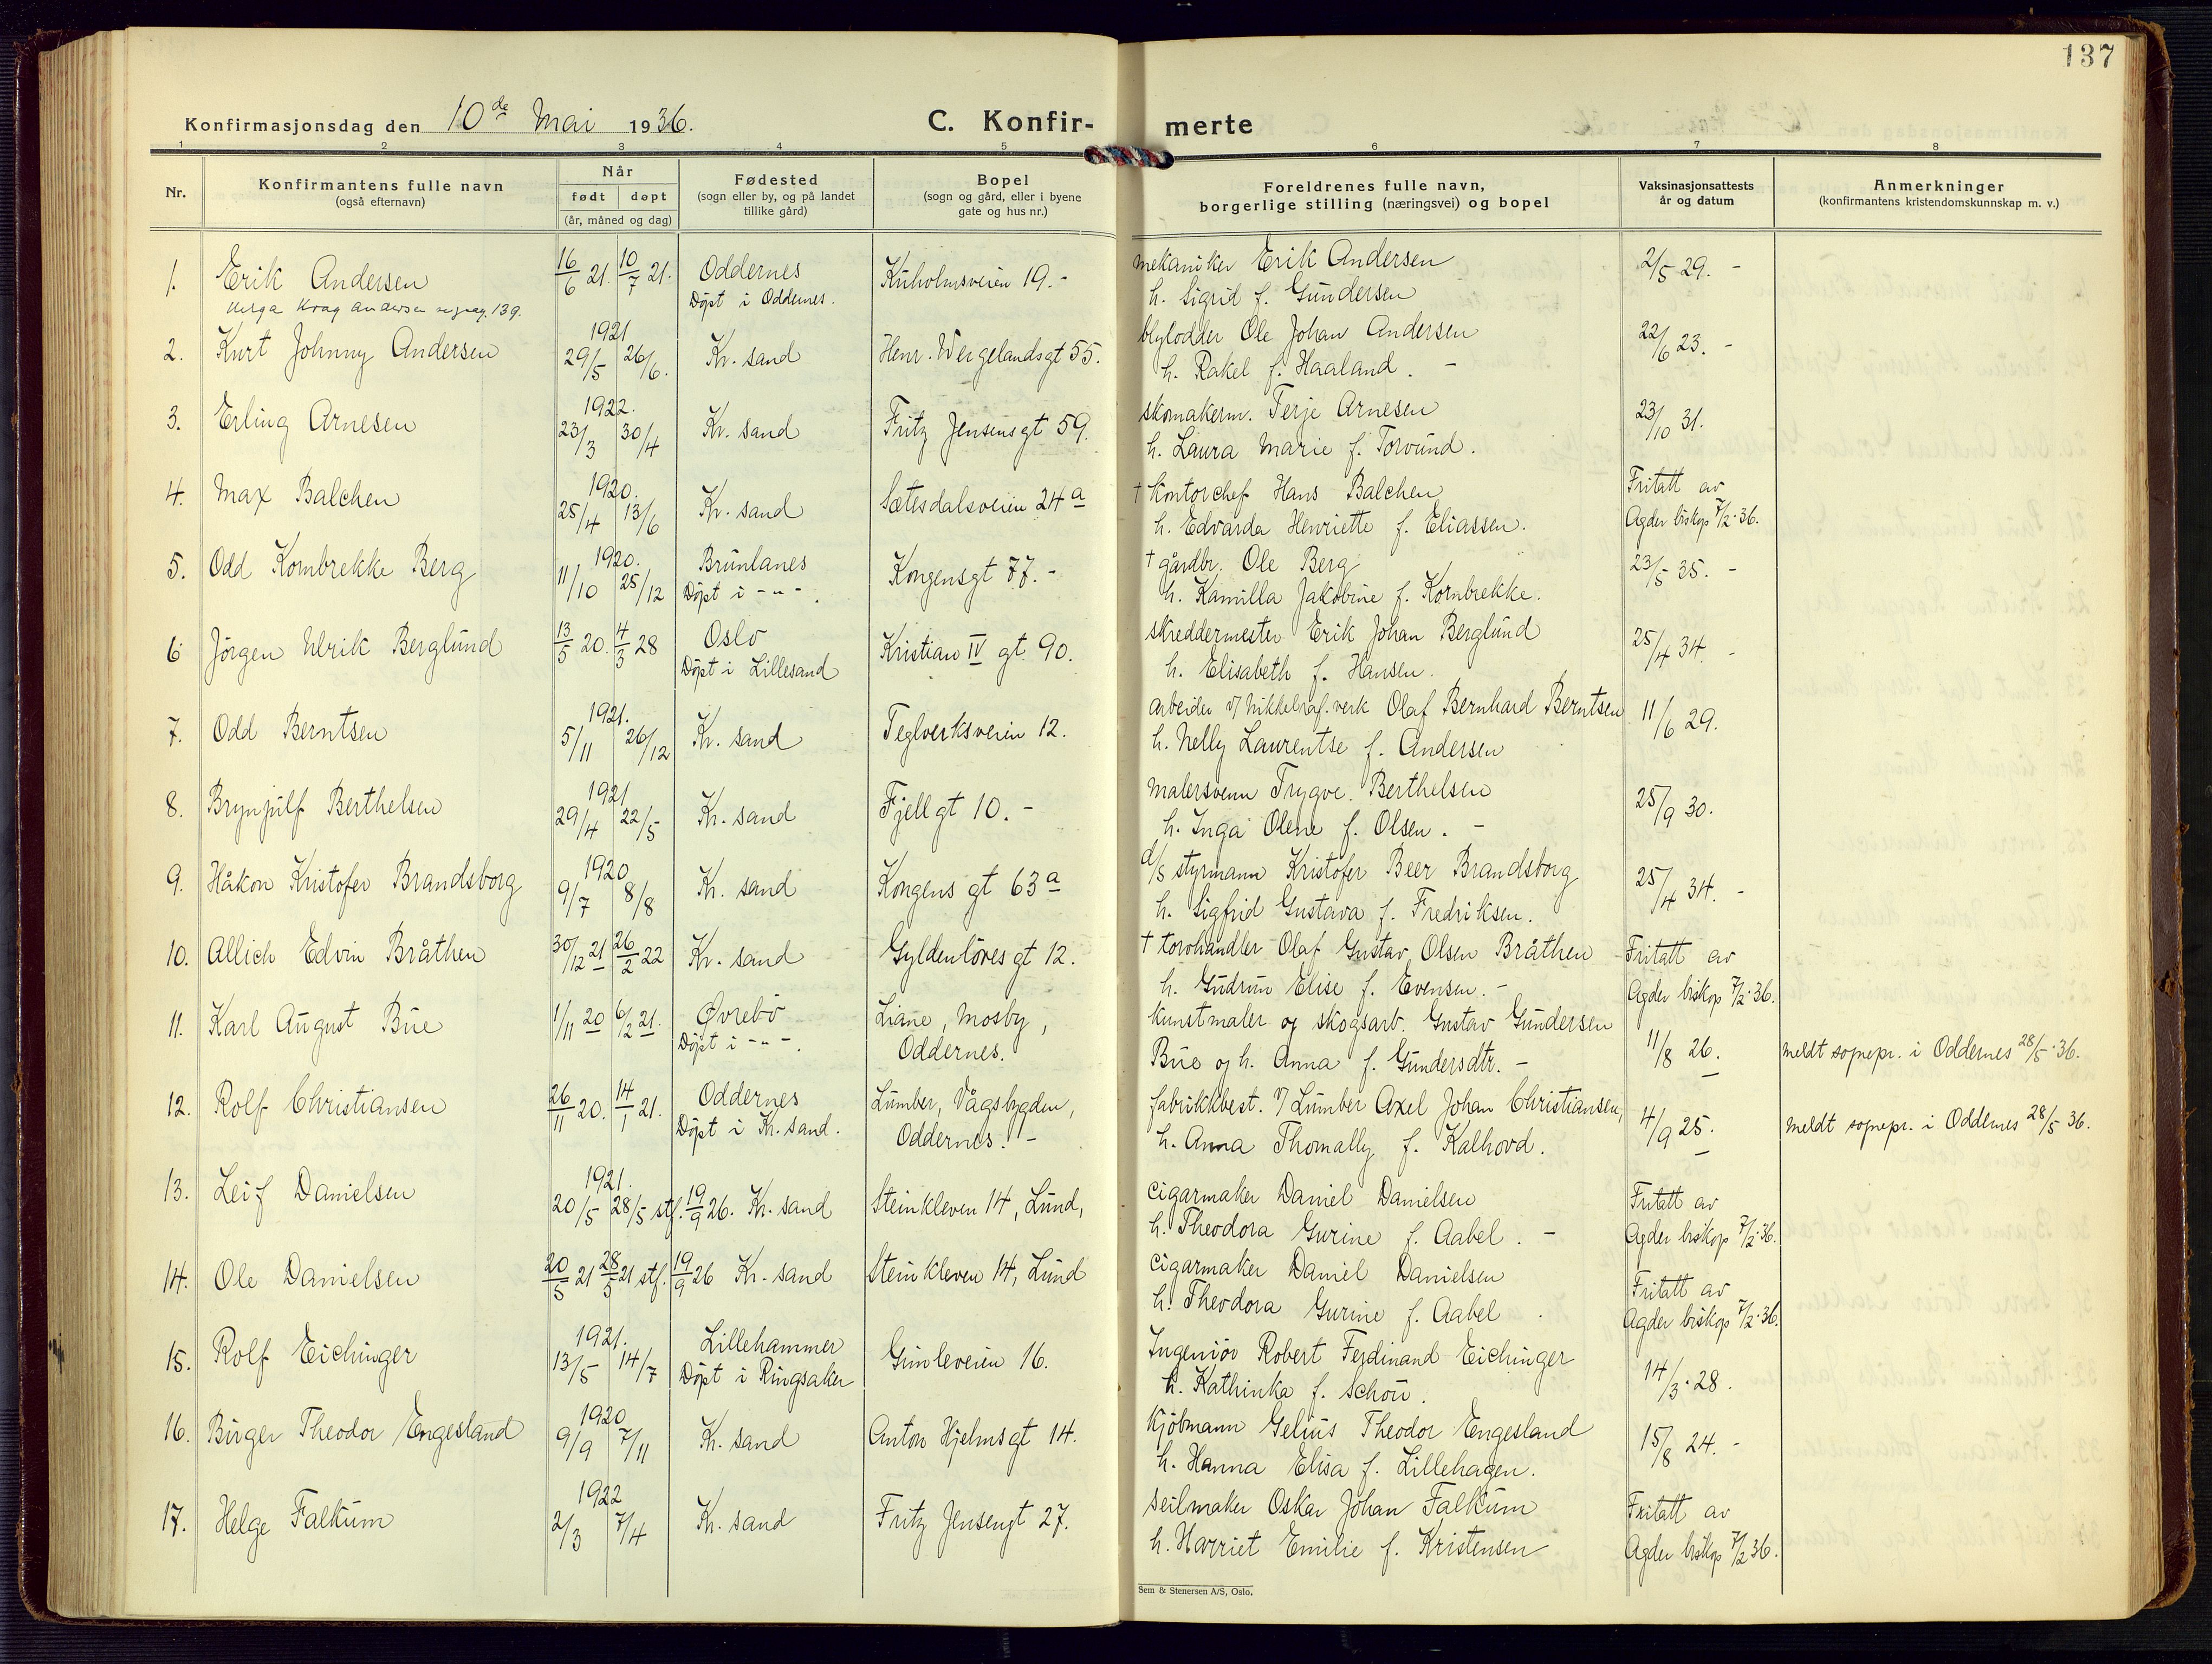 137
Konfirmasjonsdag den 10de Mai 1936.
C. Konfir-merte
1 2 3 4 5 6 7 8
Nr.
Konfirmantens fulle navn
(også efternavn)
Når
født døpt
(år, måned og dag)
Fødested
(sogn eller by, og på landet
tillike gård)
Bopel
(sogn og gård, eller i byene
gate og hus nr.)
Foreldrenes fulle navn,
borgerlige stilling (næringsvei) og bopel
Vaksinasjonsattests
år og datum
Anmerkninger
(konfirmantens kristendomskunnskap m. v.)
1. Erik Andersen 16/6 21. 10/7 21. Oddernes Kuholmsveien 19.- mekaniker Erik Andersen 2/5 29. -
Døpt i Oddernes. h. Sigrid f. Gundersen
Krag Andersen pag. 139.
1921
2. Kurt Johnny Andersen 29/5 26/6. Kr. sand Henr. Wergelandsgt 55. blylodder Ole Johan Andersen 22/6 23. -
h. Rakel f. Haaland. -
1922.
3. Erling Arnesen 23/3 30/4 Kr. sand Fritz Jensensgt 59. skomakerm. Terje Arnesen 23/10 31.
h. Laura Marie f. Torvund.
1920.
4. Max Balchen 25/4 13/6 Kr. sand Sætesdalsveien 24a † Kontorchef Hans Balchen Fritatt av
h. Edvarda Henriette f. Eliassen. Agder biskop 7/2.36.
1920.
5. Odd Kornbrekke Berg 11/10 25/12 Brunlanes Kongensgt 77.- † gårdbr. Ole Berg 23/5 35. -
Døpt i -"-. h. Kamilla Jakobine f. Kornbrekke.
6 Jørgen Ulrik Berglund 13/5 20. 4/3 28 Oslo Kristian IV gt 90. skreddermester Erik Johan Berglund 25/4 34. -
Døpt i Lillesand h. Elisabeth f. Hansen.
1921.
7. Odd Berntsen 5/11 26/12 Kr. sand Teglverksveien 12. arbeider v/ Nikkelraf.verk Olaf Bernhard Berntsen 11/6 29.
h. Nelly Laurentse f. Andersen
1921
8. Brynjulf Berthelsen 29/4 22/5 Kr. sand Fjellgt 10. - Malersvenn Trygve Berthelsen 25/9 30.
h. Inga Olene f. Olsen. -
1920
9. Håkon Kristofer Brandsborg 9/7 8/8 Kr. sand Kongens gt 63a d/s styrmann Kristofer Beer Brandsborg 25/4 34. -
h. Sigfrid Gustava f. Fredriksen.
10. Allich Edvin Bråthen 30/12 21 26/2 22 Kr. sand Gyldenløves gt 12. † torvhandler Olaf Gustav Olsen Bråthen Fritatt av
h. Gudrun Elise f. Evensen. - Agder biskop 7/2.36.
11. Karl August Bue 1/11 20 6/2 21. Øvrebø Liane, Mosby, kunstmaler og skogsarb. Gustav Gundersen 11/8 26.
Døpt i -"-. Oddernes. Bue og h. Anna f. Gundersdtr. - Meldt sognepr. i Oddernes 28/5.36.
12. Rolf Christiansen 26/11 20. 14/1 21. Oddernes Lumber, Vågsbygden, fabrikkbest. v/ Lumber Axel Johan Christiansen, 4/9 25.
Døpt i Kr. sand. Oddernes. - h. Anna Thomally f. Kalhovd. Meldt sognepr. i Oddernes 28/5 36.
1921.
13. Leif Danielsen 20/5 28/5 stf. 19/9 26. Kr. sand Steinkleven 14, Lund, cigarmaker Daniel Danielsen Fritatt av
h. Theodora Gurine f. Aabel. - Agder biskop 7/2.36.
14. Ole Danielsen 20/5 21 28/5 21 stf. 19/9 26 Kr. sand Steinkleven 14, Lund cigarmaker Daniel Danielsen Fritatt av
h. Theodora Gurine f. Aabel . Agder biskop 7/2.36.
1921.
15. Rolf Eichinger 13/5 14/7 Lillehammer Gimleveien 16. Ingeniør Robert Ferdinand Eichinger 14/3.28.
Døpt i Ringsaker h. Kathinka f. Schou.
1920
16. Birger Theodor Engesland 9/9 7/11 Kr. sand Anton Hjelmsgt 14. Kjøbmann Gelius Theodor Engesland 15/8 24. -
h. Hanna Elisa f. Lillehagen.
1922
17. Helge Falkum 2/3 7/4 Kr. sand Fritz Jensengt 27. seilmaker Oskar Johan Falkum Fritatt av
h. Harriet Emilie f. Kristensen Agder biskop 7/2 36.
Sem & Stenersen A/S, Oslo.